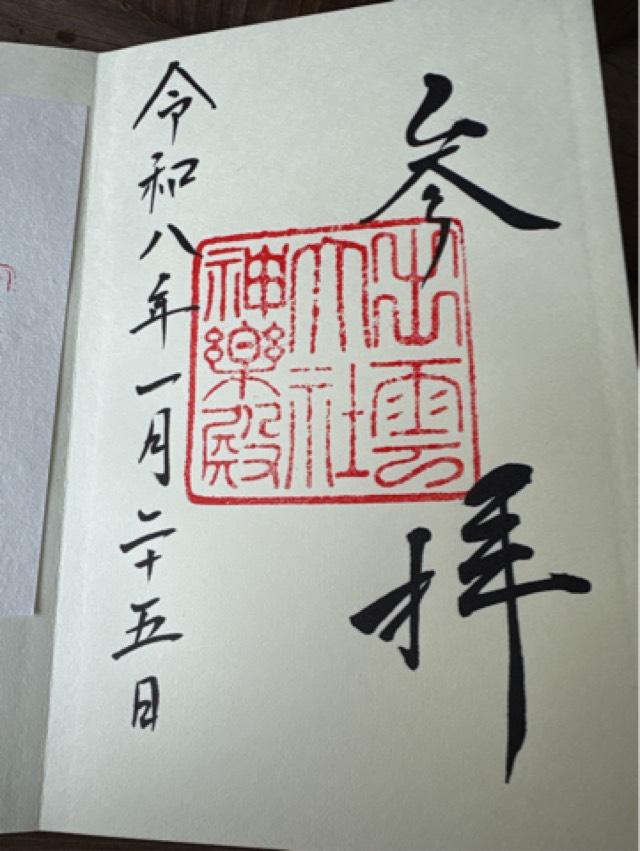 参拝
出雲
大社
神楽殿
令和八年一月二十五日